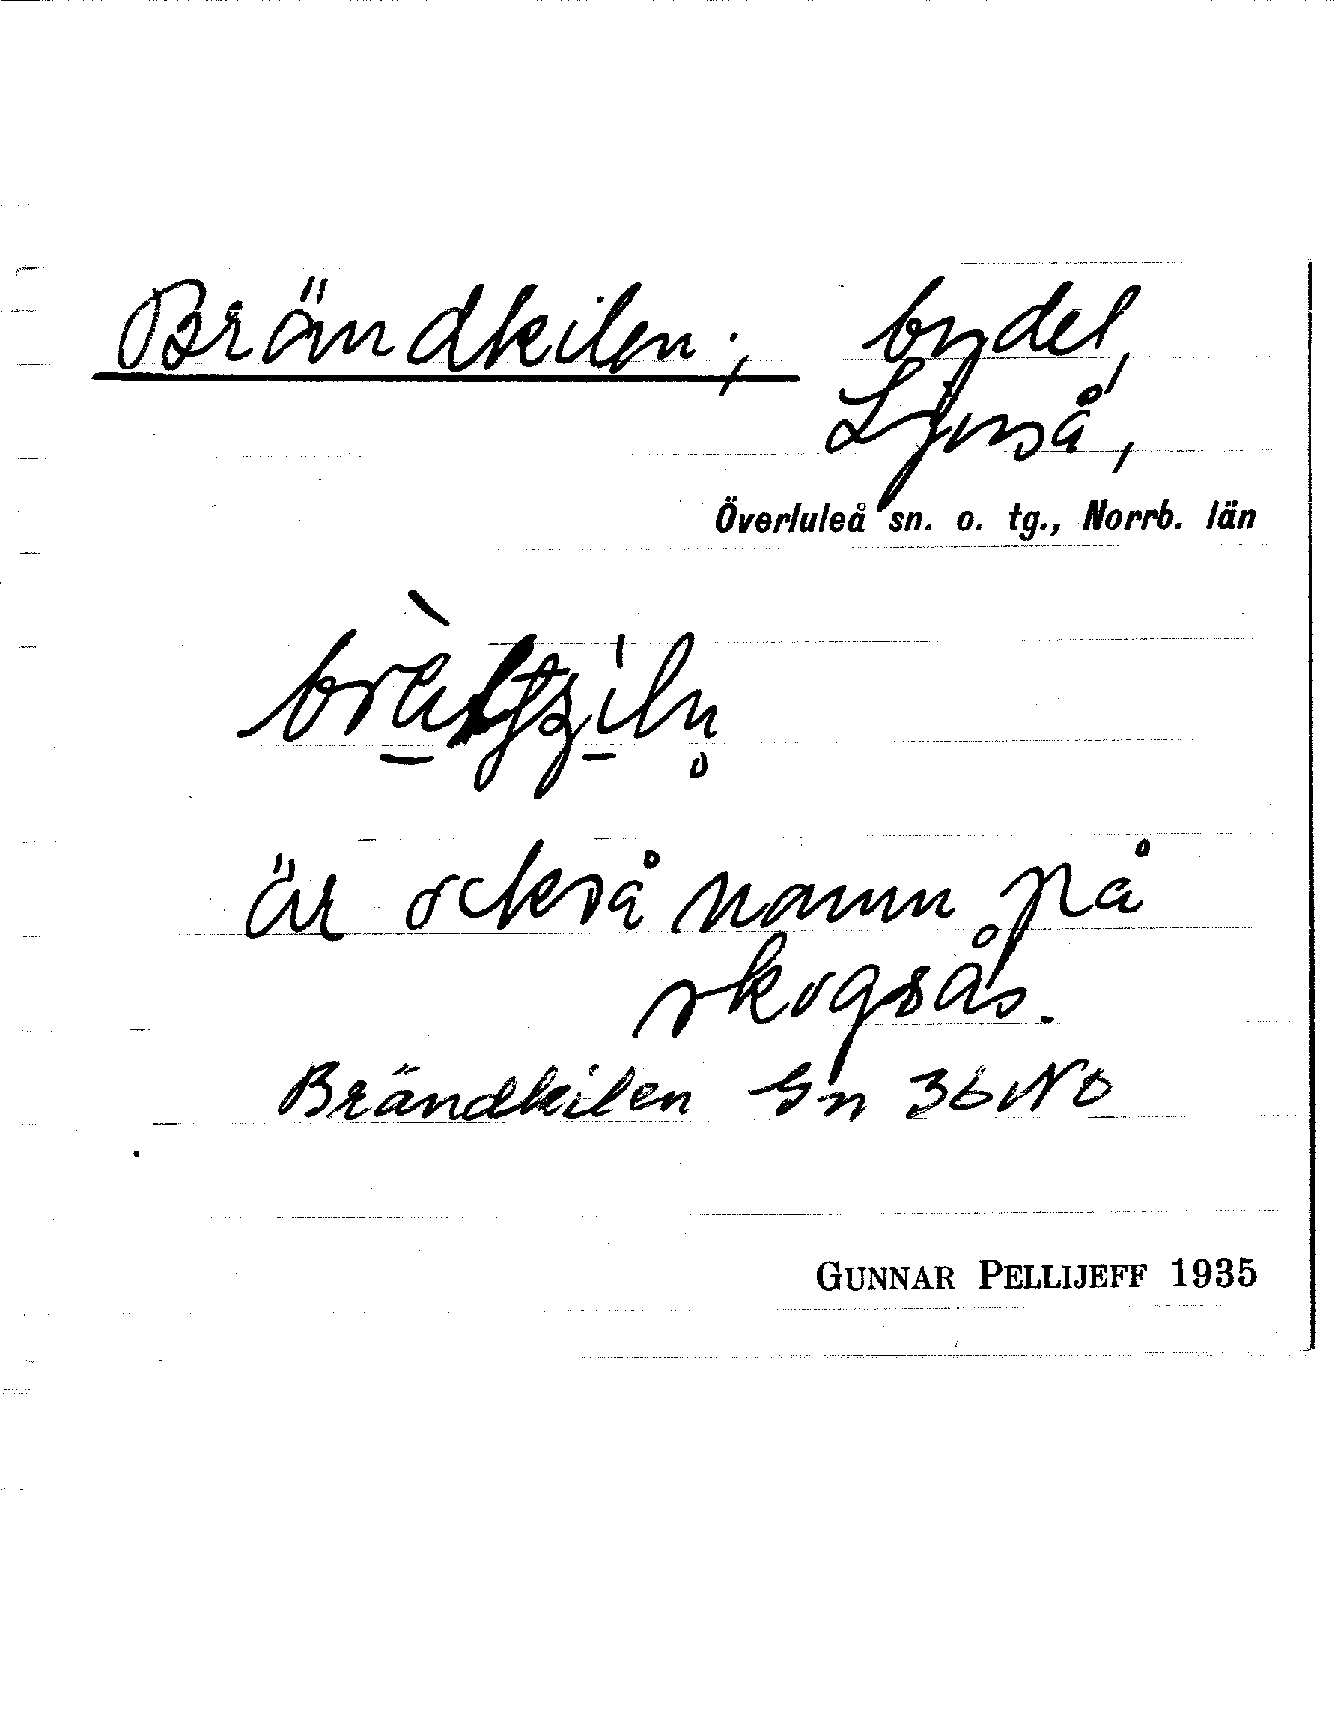 Brändkilen; bydel,
Ljuså,
Överluleå sn. o. tg., Norrb. län
är också namn på
skogsås.
Brändkilen Gn 36 NO
GUNNAR PELLIJEFF 1935